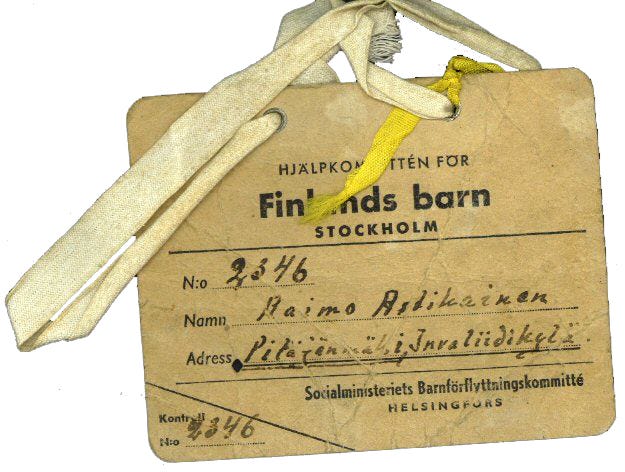 HJÄLPKOMMITTÉN FÖR
Finlands barn
STOCKHOLM
N:o 2346
Namn Raimo Astikainen
Adress Pitäjänmäki, Invaliidikylä.
Socialministeriets Barnförflyttningskommitté
HELSINGFORS
Kontroll
N:o 2346